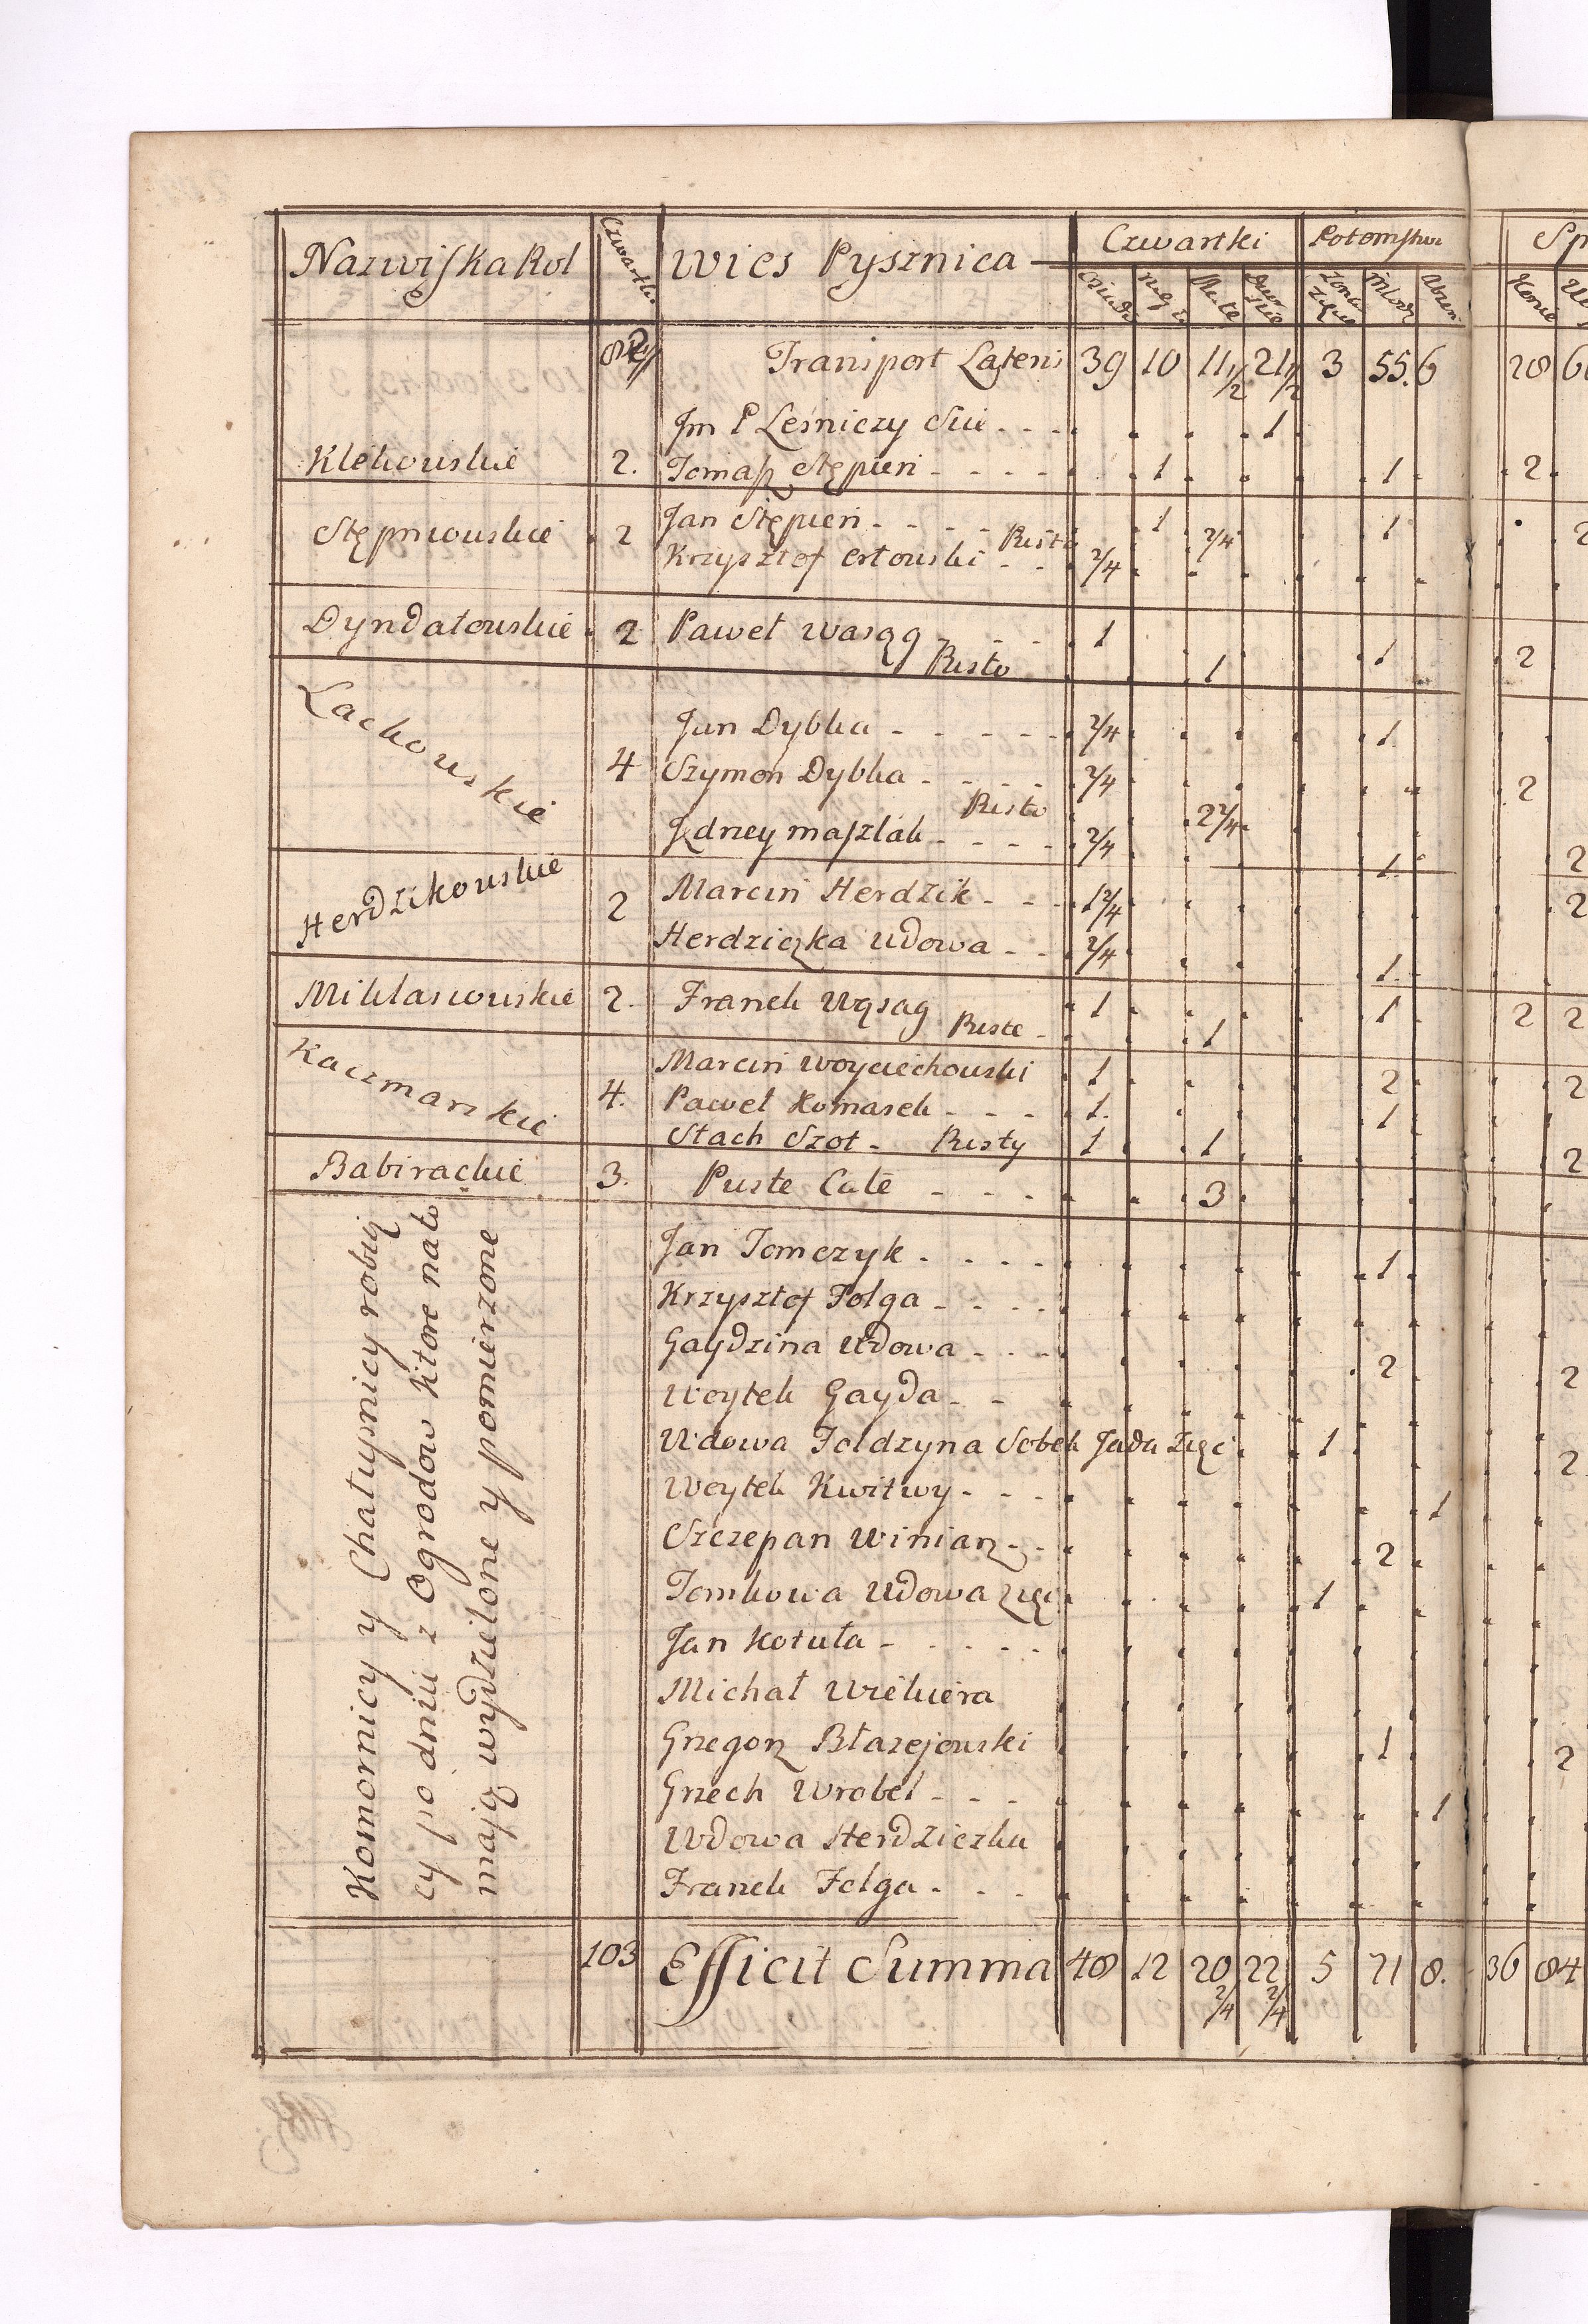 Nazwiska Rol Czwartki Wies Pysznica Czwartki Potomstwo
Osiadłe Puste Młodz
Transport Lateris 39 10 11 1/2 21 1/2 3 55. 6 28
Jm P Leśniczy 1
Klekowskie 2. Tomasz Stępień 1 1 2
Stępniowskie 2 Jan Stępień 1 1
Pusto 2/4
Krzysztof Ortowski 2/4
Dyndałowskie 2 Paweł Wasąg 1 1 2
Pusto 1
Lachowskie 4 Jan Dybka 2/4 1
Szymon Dybka 2/4 2
Pusto 2 2/4
Jędrzey Maszlak 2/4 1 2
Herdzikowskie 2 Marcin Herdzik 1 2/4 2
Herdziczka Udowa 2/4 1
Miklasowskie 2. Franek Wąsag 1 1 2 2
Puste 1
Kaczmarskie 4. Marcin Woyciechowski 1 2 2
Paweł Komasek 1. 1
Stach Szot Pusty 1 1 2
Babirackie 3. Puste Całe 3
Komornicy y Chałupnicy robią
cy po dniu z Ogrodow ktore na to
mają wydzielone y pomierzone
Jan Tomczyk 1
Krzysztof Folga
Gaydzina Udowa 2 2
Woytek Gayda
Udowa Foldzyna Sobek Jadu Zięć 1 2
Woytek Kwitwy 1
Szczepan Winiarz 2
Tomkowa Udowa Zięć 1
Jan Kotuła
Michał Wiekiera
Grzegorz Błazejowski 1 2
Grzech Wrobel 1
Wdowa Herdziczka
Franek Folga
103 Efficit Summa 48 12 20 2/4 22 2/4 5 71 8. 36 84